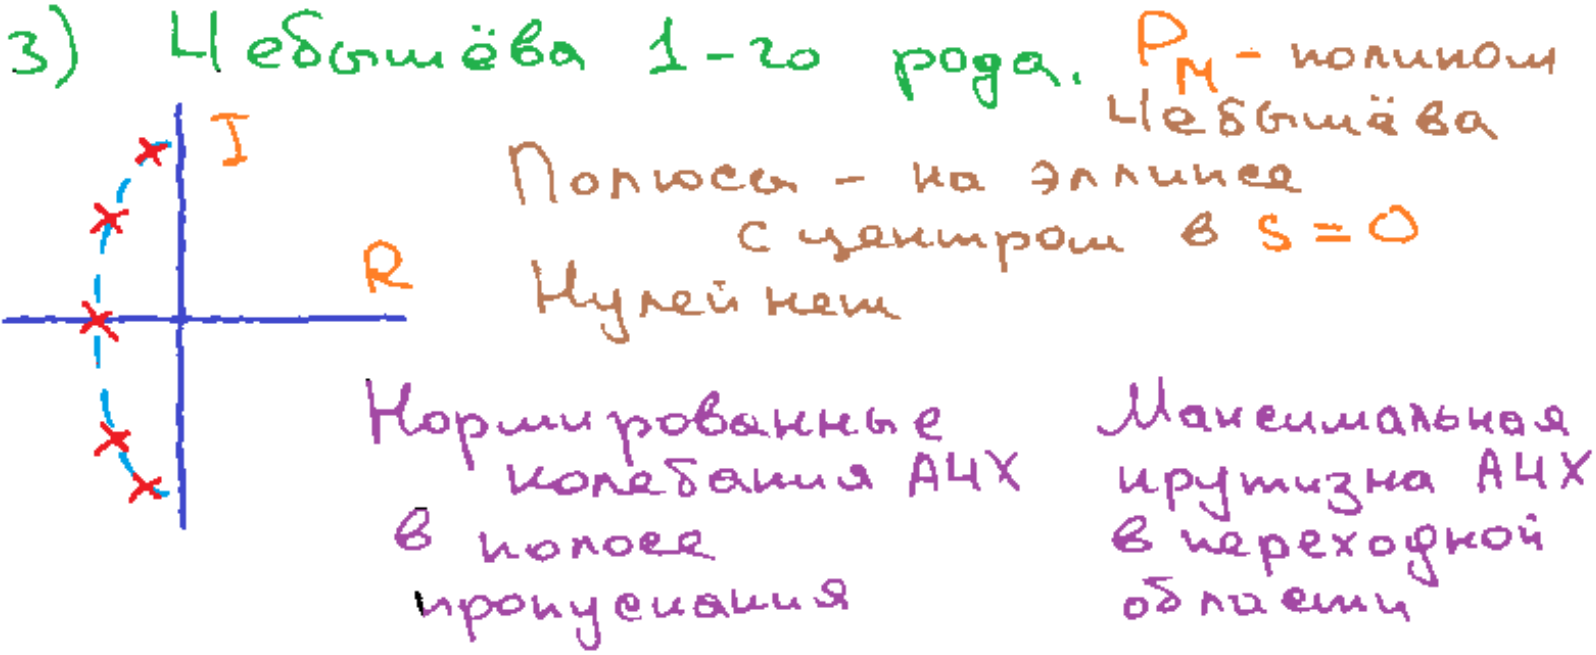 3) Чебышёва 1-го рода. P_M - полином
Чебышёва
I
Полюсы - на эллипсе
с центром в S = 0
R
Нулей нет
Нормированные
колебания АЧХ
в полосе
пропускания
Максимальная
крутизна АЧХ
в переходной
области